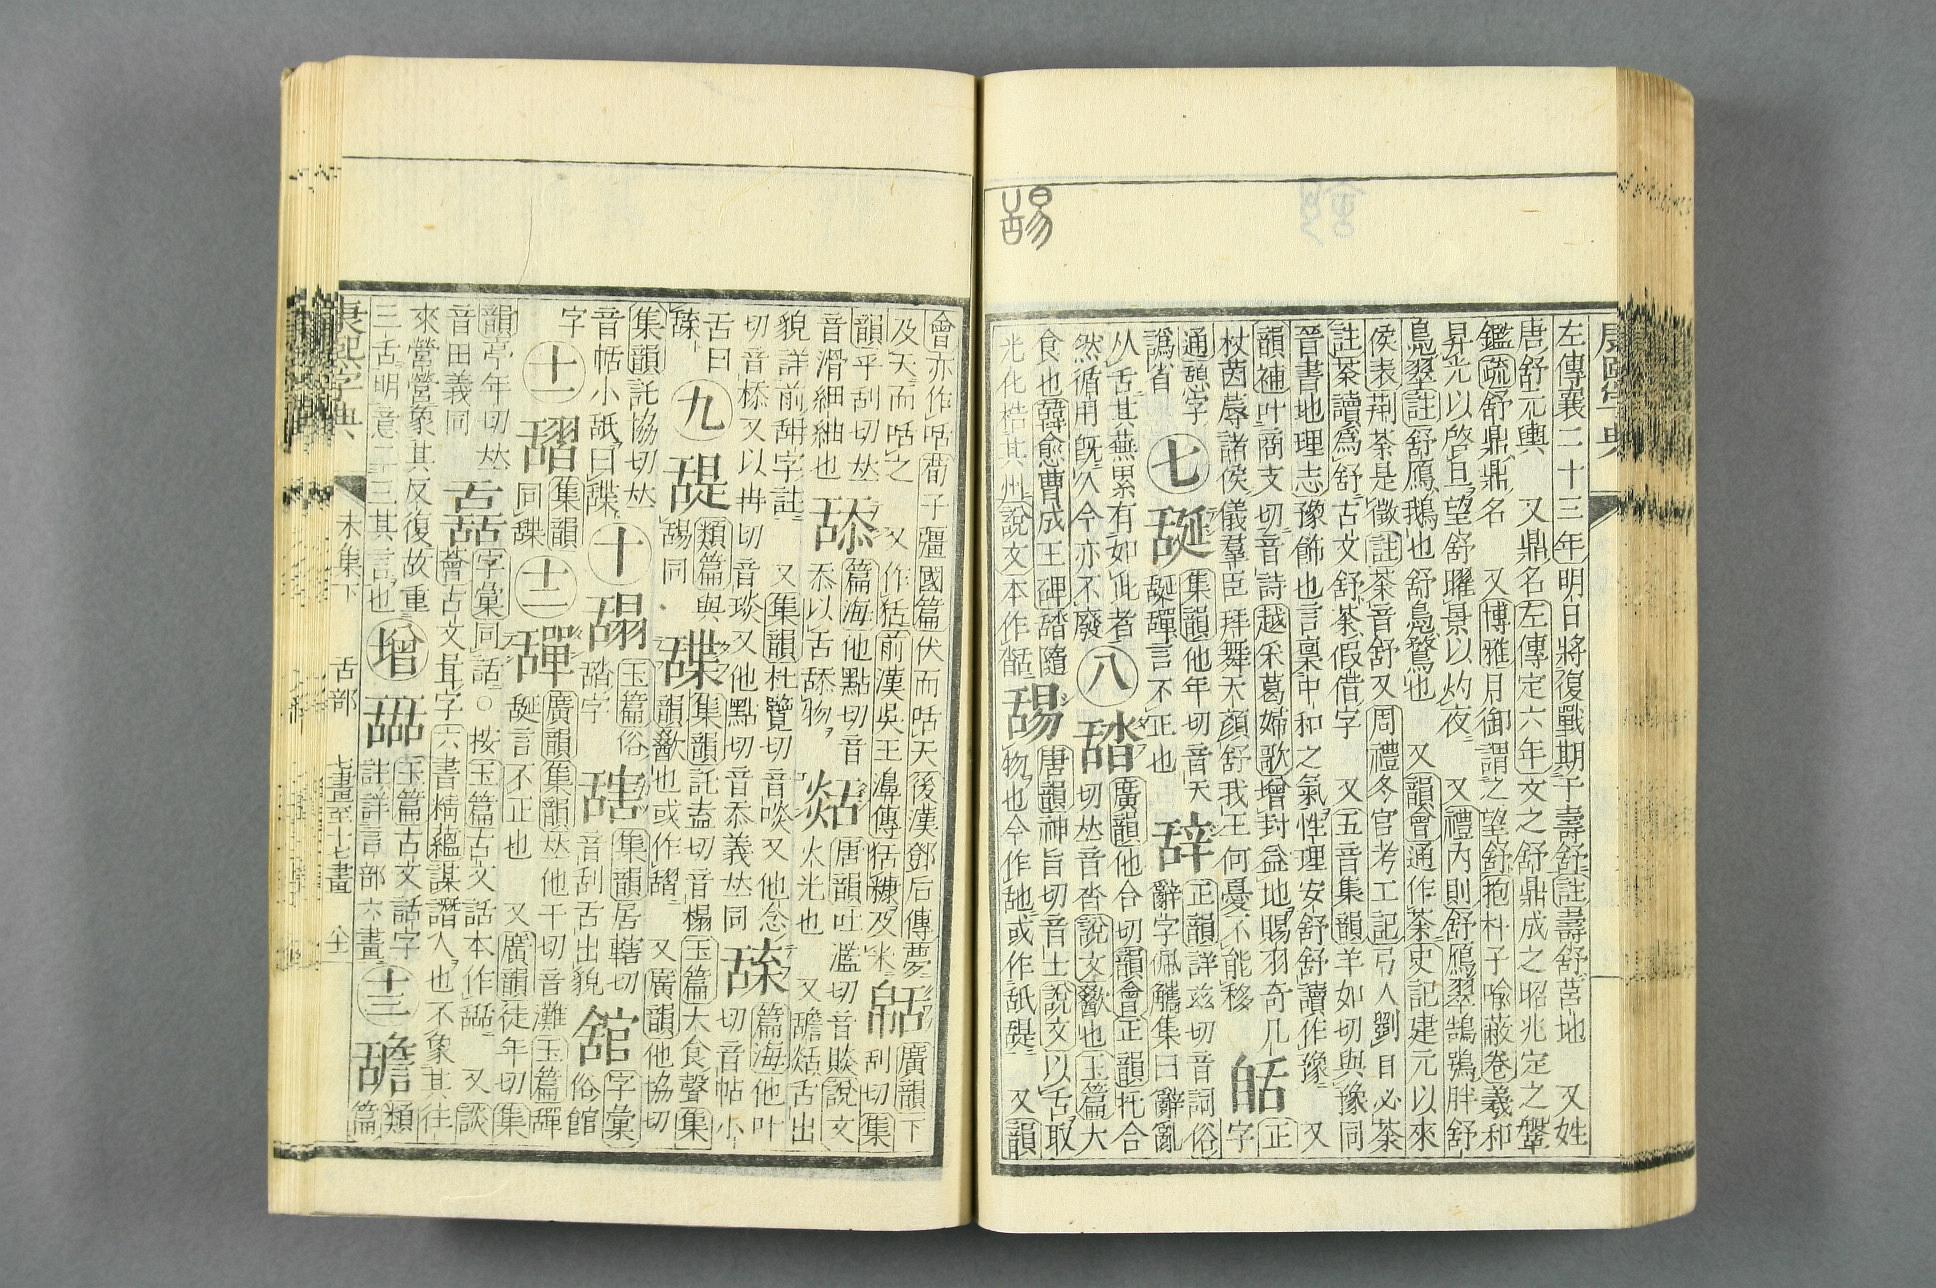 舓
左傳襄二十三年明日將復戰期于壽舒註壽舒莒地又姓
唐舒元輿又鼎名左傳定六年文之舒鼎成之昭兆定之鞶
鑑疏舒鼎鼎名又博雅月御謂之望舒抱朴子喻蔽卷羲和
昇光以啓旦望舒曜景以灼夜又禮內則舒鴈翠鵠鴞胖舒
鳧翠註舒鴈鵝也舒鳧鶩也又韻會通作荼史記建元以來
侯表荆荼是徵註荼音舒又周禮冬官考工記弓人斲目必荼
註荼讀爲舒古文舒荼假借字又五音集韻羊如切與豫同
晉書地理志豫飾也言稟中和之氣性理安舒舒讀作豫又
韻補叶商支切音詩越采葛婦歌增封益地賜羽奇几
杖茵蓐諸侯儀羣臣拜舞天顏舒我王何憂不能移
正字
通憩字
譌省
七
集韻他年切音天
言不正也
辞
正韻詳兹切音詞俗
辭字佩觿集曰辭亂
从舌其蕪累有如此者
然循用旣久今亦不廢
八
䑜
廣韻他合切韻會正韻託合
切𠀤音沓說文歠也玉篇大
食也韓愈曹成王碑䑜隨
光化捁其州說文本作
舓
唐韻神旨切音士說文以舌取
物也今作或作舐又韻
會亦作咶荀子彊國篇伏而咶天後漢鄧后傳夢
及天而咶之又作狧前漢吳王濞傳狧糠及米
廣韻下
刮切集
韻乎刮切𠀤
音滑細紬也
舚
篇海他點切音
忝以舌舚物
舕
唐韻吐濫切音賧說文
火光也又舕舌出
貌詳前甜字註又集韻杜覽切音啖又他念
切音㮇又以冉切音琰又他點切音忝義𠀤同
篇海他叶
切音帖小
舌曰
九
類篇與
舓同
集韻託盍切音榻玉篇大食聲集
韻歠也或作又廣韻他協切
集韻託協切𠀤
音帖小舐曰
十
玉篇俗
䑜字
集韻居轄切
音刮舌出貌
舘
字彙
俗館
字
十一
集韻
同
十二
廣韻集韻𠀤他干切音灘玉篇
言不正也又廣韻徒年切集
韻亭年切𠀤
音田義同
字彙同話○按玉篇古文話本作又談
薈古文聶字六書精蘊謀譖人也不象其往
來營營象其反復故重
三舌明意二三其言也
增
玉篇古文話字
註詳言部六畫
十三
類
篇
康熙字典
未集下
舌部
七畫至十七畫